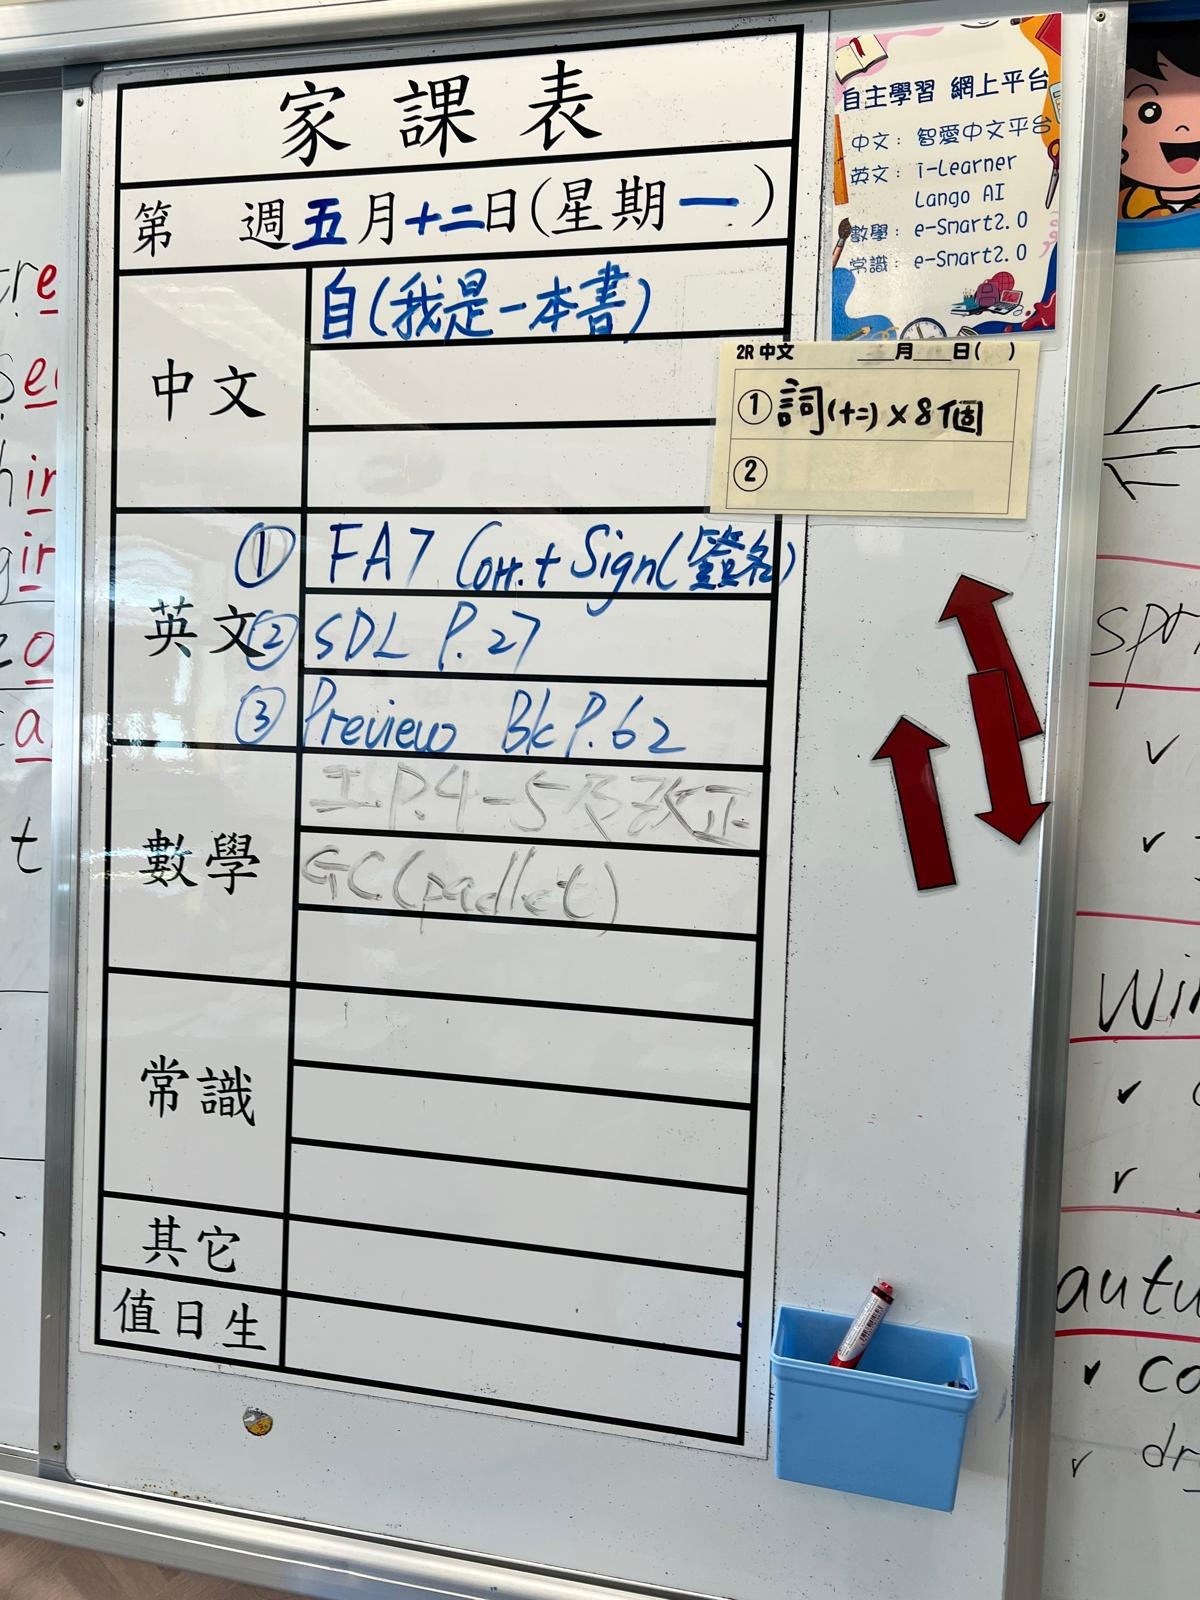 家課表
第 週五月十二日(星期一)
中文
自(我是一本書)
英文
① FA7 Corr. + Sign(簽名)
② SDL P.27
③ Preview Bk P.62
數學
P.4-5及改正
GC(padlet)
常識
其它
值日生
自主學習 網上平台
中文: 智愛中文平台
英文: i-Learner
Lango AI
數學: e-Smart2.0
常識: e-Smart2.0
2R 中文 ___月___日( )
① 詞(十二) x 8個
②